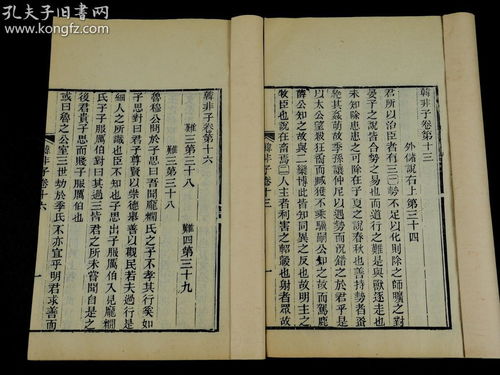 孔夫子旧书网
www.kongfz.com
韓非子卷第十三
外儲說右上第三十四
君所以治臣者有三〇勢不足以化則除之師曠之對
晏子之說皆合勢之易也而道行之難是與獸逐走也
未知除患患之可除在子夏之說春秋也善持勢者蚤
絕其姦萌故季孫讓仲尼以遇勢而況錯之於君乎是
以太公望殺狂矞而臧獲不乘驥嗣公知之故而駕鹿
薛公知之故與二欒博此皆知同異之反也故明主之
牧臣也說在畜焉二人主者利害之軺轂也射者眾故
韓非子卷十三
一
韓非子卷第十六
難三第三十八 難四第三十九
難三第三十八
魯穆公問於子思曰吾聞龐橺氏之子不孝其行奚如
子思對曰君子尊賢以崇德舉善以觀民若夫過行是
細人之所識也臣不知也子思出子服厲伯入見龐橺
氏子子服厲伯對曰其過三皆君之所未嘗聞自是之
後君貴子思而賤子服厲伯也
或曰魯之公室三世劫於季氏不亦宜乎明君求善而
韓非子卷十六
一